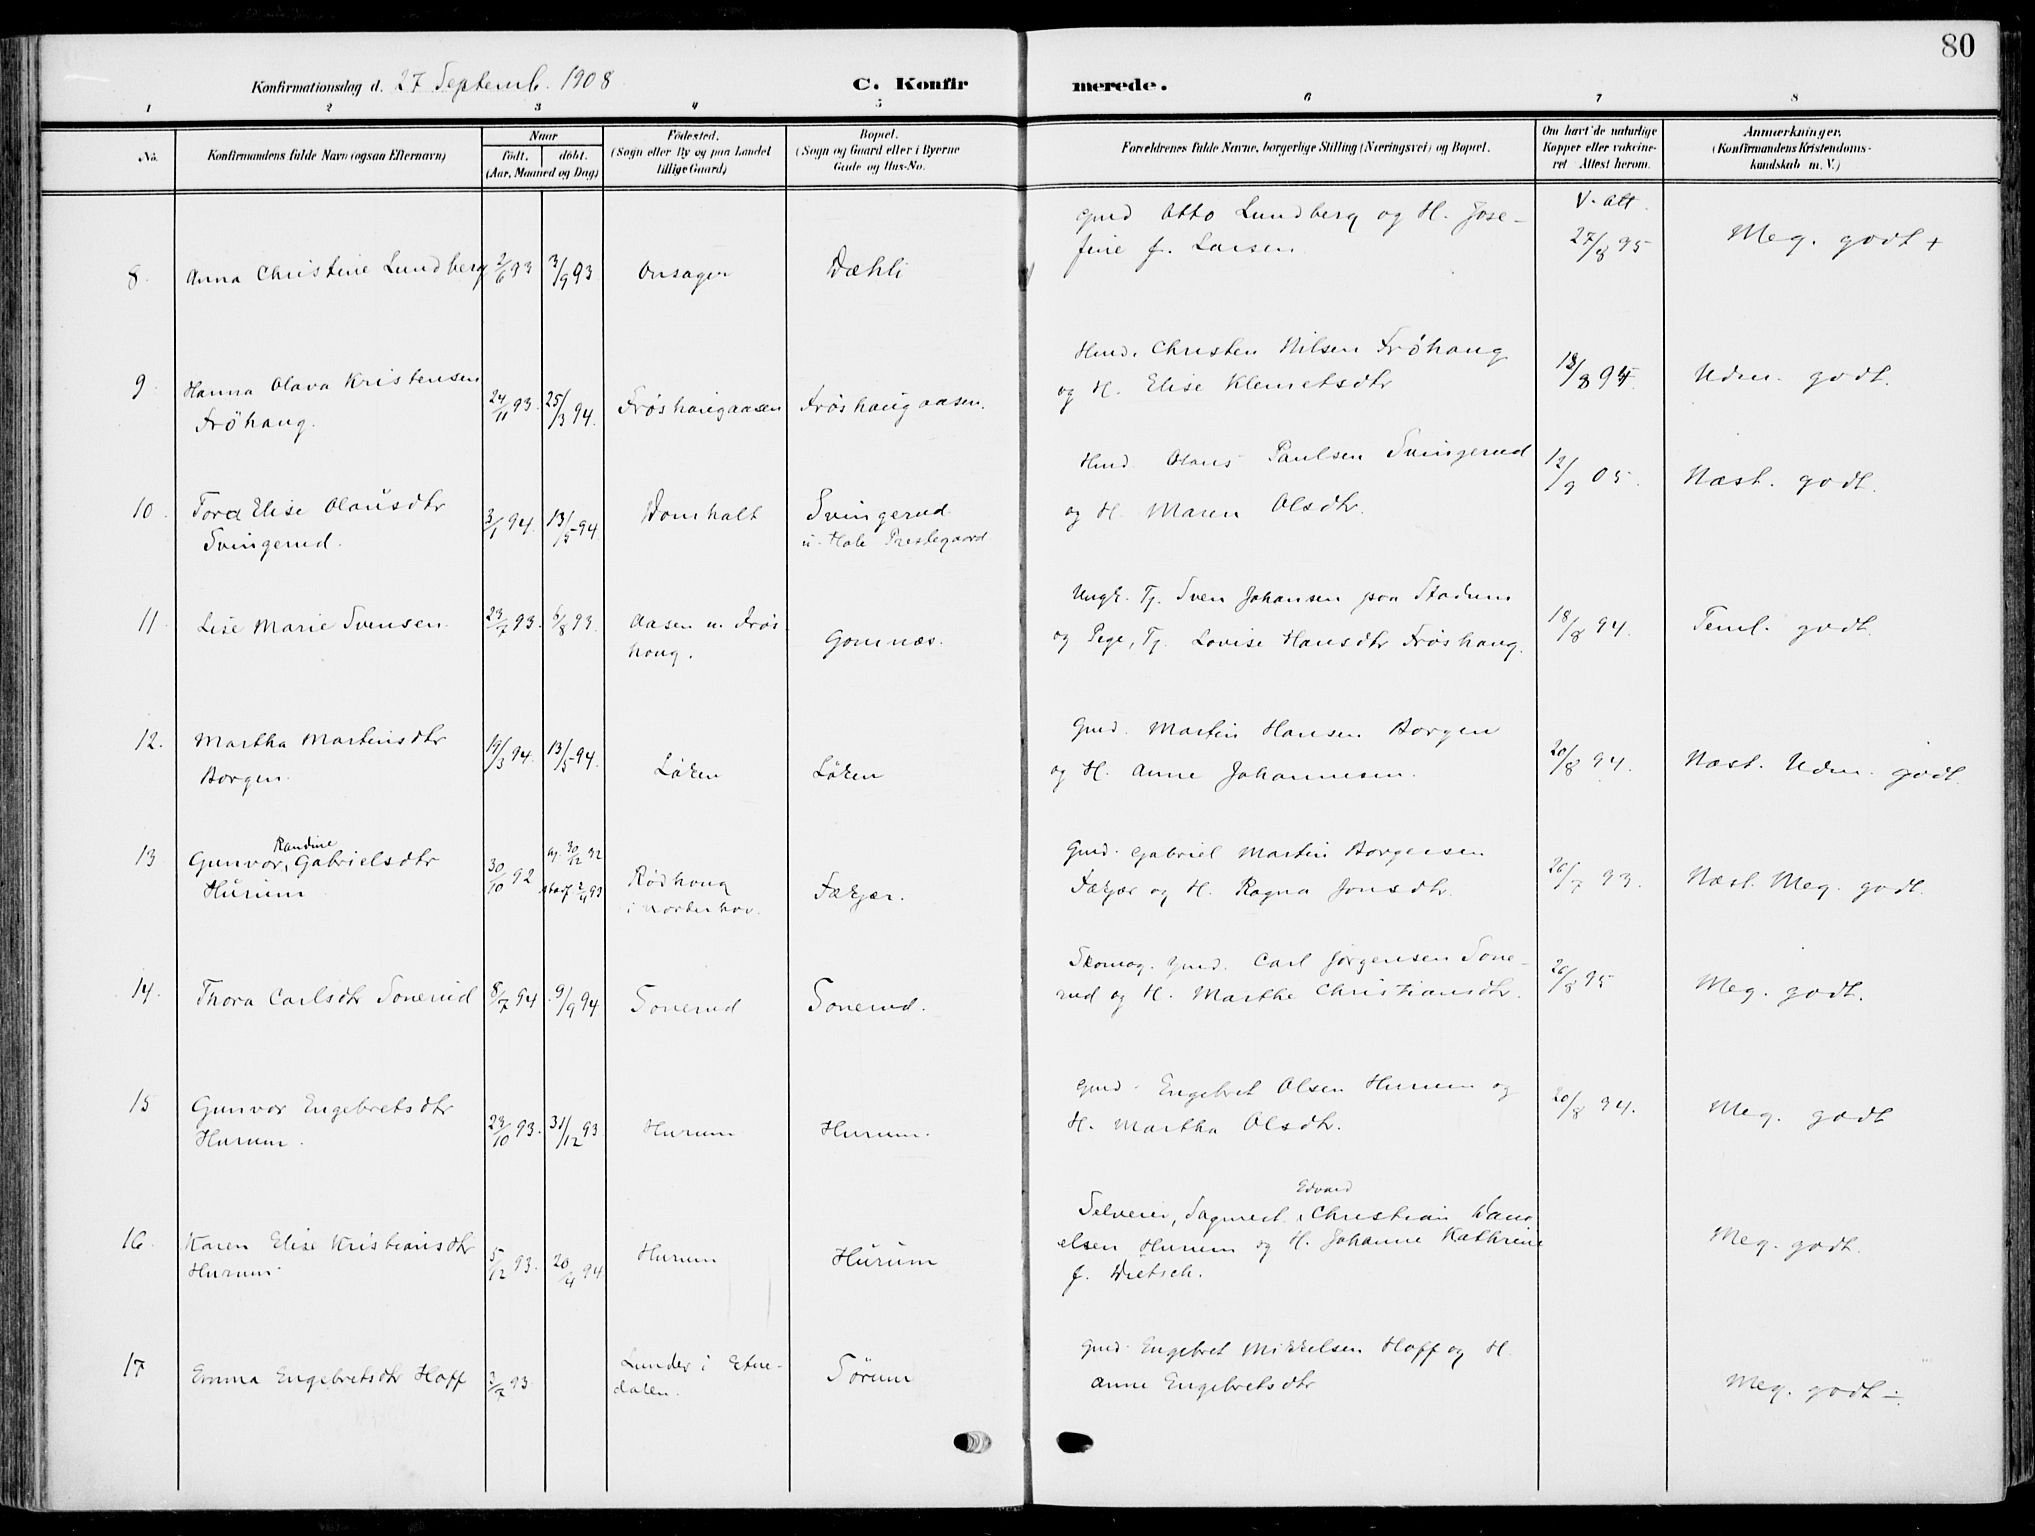 80
Konfirmationsdag d. 27 Septemb. 1908
C. Konfirmerede.
1 2 3 4 5 6 7 8
No.
Konfirmandens fulde Navn (ogsaa Efternavn)
Naar
født. døbt.
(Aar, Maaned og Dag)
Fødested.
(Sogn eller By og paa Landet
tillige Gaard)
Bopæl.
(Sogn og Gaard eller i Byerne
Gade og Hus-No.
Forældrenes fulde Navne, borgerlige Stilling (Næringsvei) og Bopæl.
Om havt de naturlige
Kopper eller vakcine-
ret Attest herom.
Anmærkninger.
(Konfirmandens Kristendoms-
kundskab m. V.)
8. Anna Christine Lundberg 2/6 93 3/9 93 Onsager Dæhli
Gmd Otto Lundberg og H. Jose-
fine f. Larsen
V. Att.
27/8 95 Meg. godt +
9. Hanna Olava Kristensen
Fröhaug. 24/11 93. 25/3 94. Fröshaugaasen Fröshaugaasen.
Hmd. Christen Nilsen Fröhaug
og H. Elise Klemetsdtr
18/8 94 Udm. godt.
10. Tora Elise Olausdtr
Svingerud. 3/1 94. 13/5 94 Domholt Svingerud
u. Hole Prestegaard
Hmd. Olaus Paulsen Svingerud
og H. Maren Olsdtr.
12/9 05. Næst. godt.
11. Lise Marie Svensen. 23/7 93. 6/8 93. Aasen u. Frös
haug. Gomnæs.
Ungk. Tj. Sven Johansen paa Stadum
og Pige, Tj. Lovise Hansdtr Fröshaug.
18/8 94. Teml. godt.
12. Martha Martinsdtr
Borgen. 19/3 94. 13/5 94. Löken Löken
Gmd. Martin Hansen Borgen
og H. Anne Johannesen.
20/8 94. Næst. Udm. godt.
13. Gunvor, Randine Gabrielsdtr
Hurum 30/10 92 30/12 92
2/4 93 Rödhoug
i Norderhov. Fækjær.
Gmd. Gabriel Martin Borgersen
Fækjær og H. Ragna Jonsdtr.
26/7 93. Næst. Meg. godt.
14. Thora Carlsdtr Sonerud 8/7 94 9/9 94 Sonerud Sonerud.
Skomag. Gmd. Carl Jørgensen Sone-
rud og H. Marthe Christiansdtr.
26/8 95 Meg. godt.
15 Gunvor Engebretsdtr
Hurum. 23/10 93. 31/12 93 Hurum Hurum.
Gmd. Engebret Olsen Hurum og
H. Martha Olsdtr.
20/8 94. Meg. godt
16. Karen Elise Kristiansdtr
Hurum. 5/12 93. 20/4 94 Hurum Hurum
Selveier, Sagmest. Edvard Christian Dani
elsen Hurum og H. Johanne Kathrine
f. Dietsch.
Meg. godt.
17 Emma Engebretsdtr Hoff 3/7 93 Lunder i Etne-
dalen. Sörum
Gmd. Engebret Mikkelsen Hoff og H.
Anne Engebretsdtr
Meg. godt ÷.